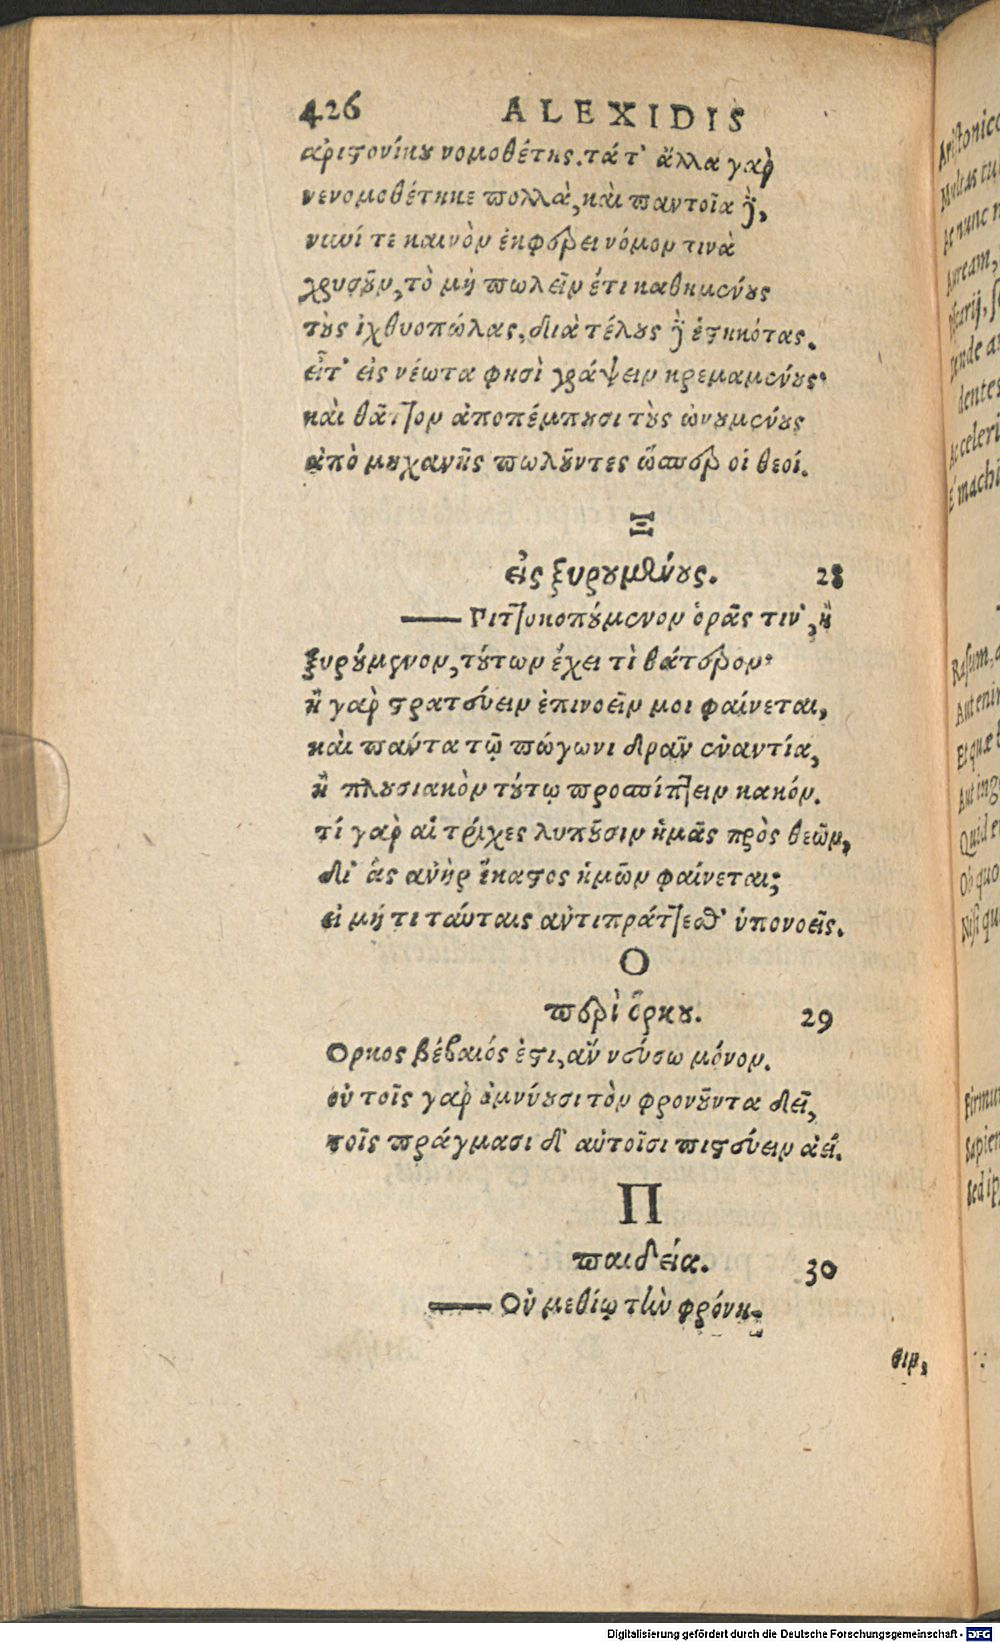 426 ALEXIDIS
ἀριστονίκου νομοθέτης. τά τ' ἄλλα γὰρ
νενομοθέτηκε πολλὰ, καὶ παντοῖα δὴ,
νυνί τε καινὸν ἐκφέρει νόμον τινὰ
χρυσοῦν, τὸ μὴ πωλεῖν ἔτι καθημένους
τοὺς ἰχθυοπώλας, διὰ τέλους δὴ ἑστηκότας.
εἶτ' εἰς νέωτα φησὶ γράψειν κρεμαμένους·
καὶ θᾶττον ἀποπέμπουσι τοὺς ὠνουμένους
ἀπὸ μηχανῆς πωλοῦντες ὥσπερ οἱ θεοί.
Ξ
εἰς ξυρουμένους. 28
— Πιττοκοπούμενον ὁρᾷς τιν', ἢ
ξυρούμενον, τούτων ἔχει τὶ θάτερον·
ἢ γὰρ στρατεύειν ἐπινοεῖν μοι φαίνεται,
καὶ πάντα τῷ πώγωνι δρᾶν ἐναντία,
ἢ πλουσιακὸν τούτῳ προσπίπτειν κακόν.
τί γὰρ αἱ τρίχες λυποῦσιν ἡμᾶς πρὸς θεῶν,
δι' ἃς ἀνὴρ ἕκαστος ἡμῶν φαίνεται;
εἰ μή τι ταύταις ἀντιπράττεσθ' ὑπονοεῖς.
Ο
περὶ ὅρκου. 29
Ορκος βέβαιός ἐστι, ἂν νεύσω μόνον.
οὐ τοῖς γὰρ ὀμνύουσι τὸν φρονοῦντα δεῖ,
τοῖς πράγμασι δ' αὐτοῖσι πιστεύειν ἀεί.
Π
παιδεία. 30
— Οὐ μεθίῳ τὴν φρόνη-
σιν,
Ac celeri
Rasum,
Aut
Quid
Ob quo
Sed ip
Digitalisierung gefördert durch die Deutsche Forschungsgemeinschaft - DFG